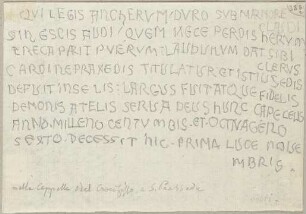 QUI LEGIS ANCHERUM DURO SUB MARMORE
SI NESCIS AUDI QUEM NECE PERDIS HERUM
TRECA PARIT PUERUM LAUDUNUM DAT SIBI CLERUM
CARDINE PRAXEDIS TITULATUR ET ISTIUS EDIS
DEFUIT INSE LIS LARGUS FUIT ATQUE FIDELIS
DEMONIS A TELIS SERVA DEUS HUNC CAPE CELIS
ANNO MILLENO CENTUM BIS ET OCTUAGENO
SEXTO DECESSIT HIC PRIMA LUCE NOVE
MBRIS
nella Cappella del Crocifisso a S. Prassede